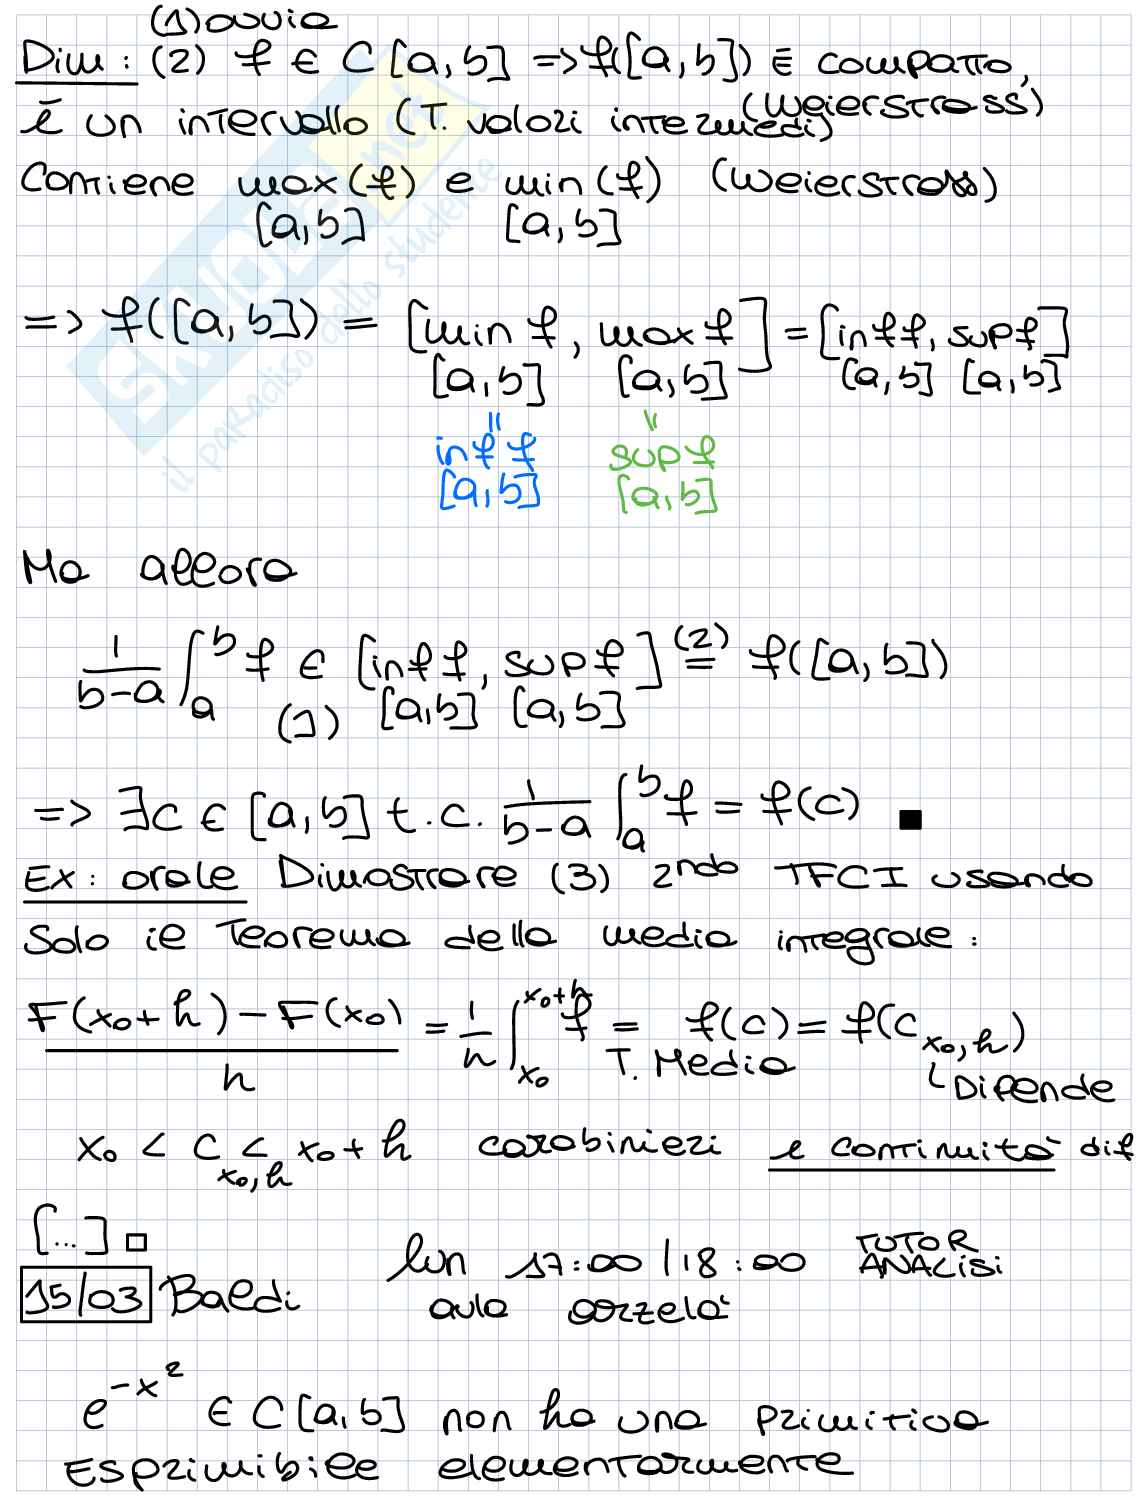 (1) ovvia
Dim: (2) f ∈ C[a,b] => f([a,b]) È compatto,
(Weierstrass)
è un intervallo (T. valori intermedi)
Contiene max(f) e min(f) (Weierstrass)
[a,b] [a,b]
=> f([a,b]) = [min f, max f] = [inf f, sup f]
[a,b] [a,b] [a,b] [a,b]
= =
inf f sup f
[a,b] [a,b]
Ma allora
1/(b-a) ∫_a^b f ∈ [inf f, sup f] (2)= f([a,b])
(1) [a,b] [a,b]
=> ∃c ∈ [a,b] t.c. 1/(b-a) ∫_a^b f = f(c) ■
Ex: orale Dimostrare (3) 2ndo TFCI usando
Solo il Teorema della media integrale:
(F(x₀+h) - F(x₀))/h = 1/h ∫_{x₀}^{x₀+h} f = f(c) = f(c_{x₀,h})
T. Media Dipende
x₀ < c_{x₀,h} < x₀+h carabinieri e continuità di f
[...] □
15/03 Baldi lun 17:00/18:00 TUTOR
ANALISI
aula
e^{-x²} ∈ C[a,b] non ha una primitiva
Esprimibile elementarmente
SKUOLA.net
il paradiso dello studente